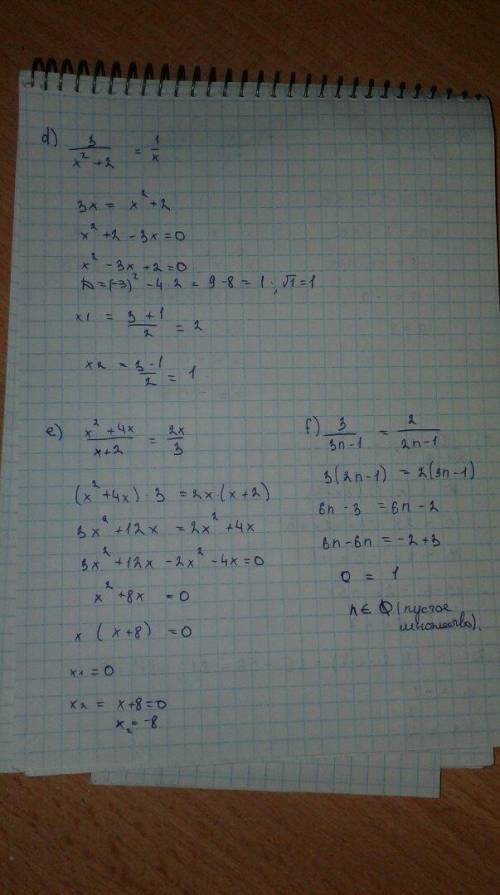 d) 3/(x²+2) = 1/x
3x = x²+2
x²+2-3x=0
x²-3x+2=0
D=(-3)²-4·2 = 9-8 = 1; √1=1
x1 = (3+1)/2 = 2
x2 = (3-1)/2 = 1
e) (x²+4x)/(x+2) = 2x/3
(x²+4x)·3 = 2x·(x+2)
3x²+12x = 2x²+4x
3x²+12x-2x²-4x=0
x²+8x = 0
x (x+8) = 0
x1=0
x2 = x+8=0
x₂=-8
f) 3/(3n-1) = 2/(2n-1)
3(2n-1) = 2(3n-1)
6n-3 = 6n-2
6n-6n = -2+3
0 = 1
n∈∅ (пустое
множество).